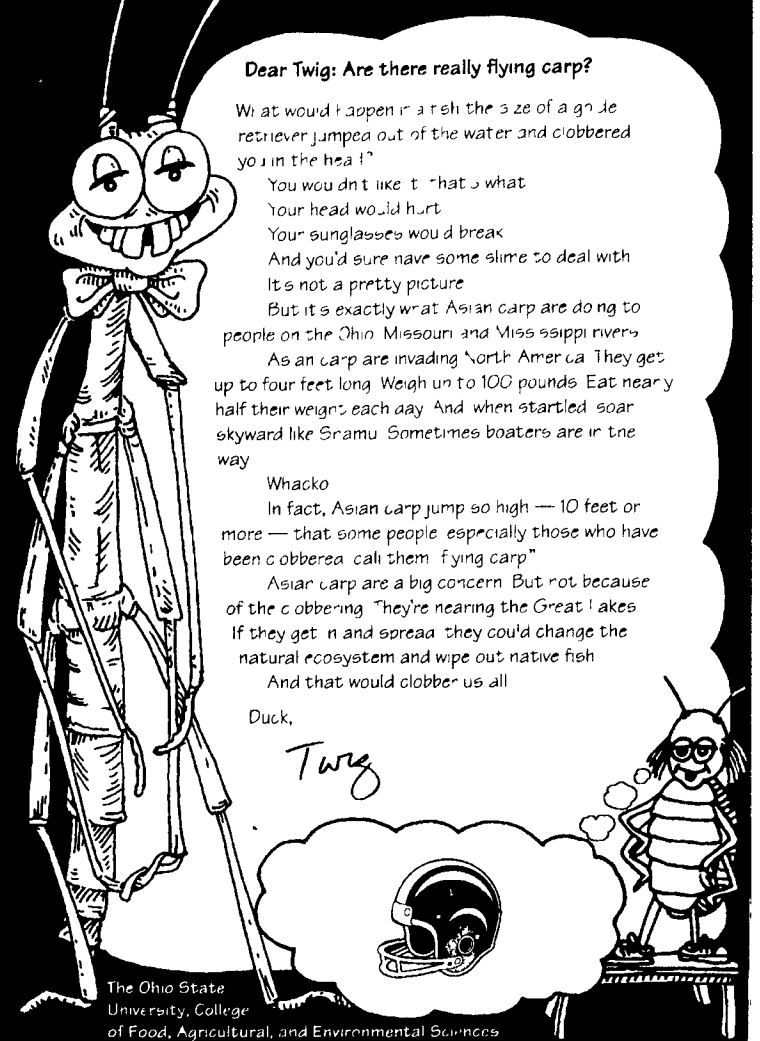 Dear Twig: Are there really flying carp?
What would happen if a fish the size of a golden
retriever jumped out of the water and clobbered
you in the head?
You wouldn't like it. That's what.
Your head would hurt.
Your sunglasses would break.
And you'd sure have some slime to deal with.
It's not a pretty picture.
But it's exactly what Asian carp are doing to
people on the Ohio, Missouri and Mississippi rivers.
Asian carp are invading North America. They get
up to four feet long. Weigh up to 100 pounds. Eat nearly
half their weight each day. And, when startled, soar
skyward like Shamu. Sometimes boaters are in the
way.
Whacko.
In fact, Asian carp jump so high — 10 feet or
more — that some people, especially those who have
been clobbered, call them "flying carp."
Asian carp are a big concern. But not because
of the clobbering. They're nearing the Great Lakes.
If they get in and spread, they could change the
natural ecosystem and wipe out native fish.
And that would clobber us all.
Duck,
Twig
The Ohio State
University, College
of Food, Agricultural, and Environmental Sciences